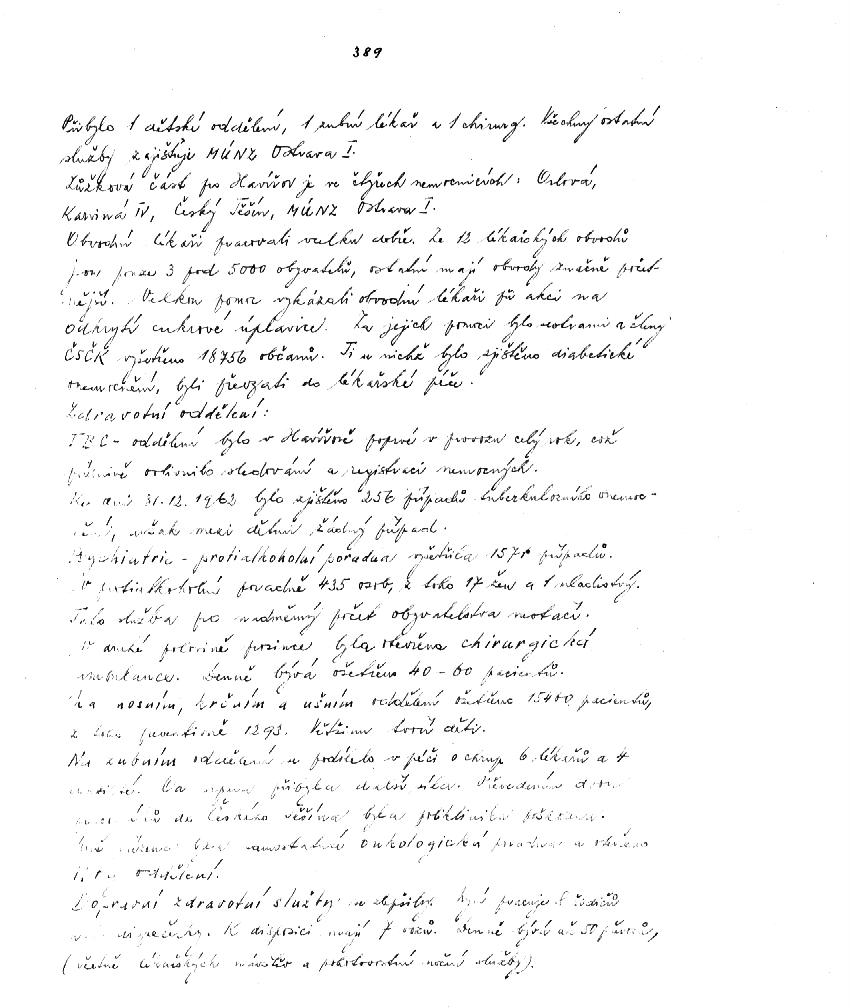 389
Přibylo 1 dětské oddělení, 1 zubní lékař a 1 chirurg. Všechny ostatní
služby zajišťuje MÚNZ Ostrava I.
Lůžková část pro Havířov je ve čtyřech nemocnicích: Orlová,
Karviná IV, Český Těšín, MÚNZ Ostrava I.
Obvodní lékaři pracovali velku dobře. Ze 12 lékařských obvodů
jsou pouze 3 pod 5000 obyvatelů, ostatní mají obvody značně počet-
nější. Velkou pomoc vykázali obvodní lékaři při akci na
odkrytí cukrové úplavice. Za jejich pomoci bylo sestrami a členy
ČSČK vyšetřeno 18756 občanů. Ti u nichž bylo zjištěno diabetické
onemocnění, byli převzati do lékařské péče.
Zdravotní oddělení:
TBC - oddělení bylo v Havířově poprvé v provozu celý rok, což
příznivě ovlivnilo sledování a registraci nemocných.
Ke dni 31.12.1962 bylo zjištěno 256 případů tuberkulozního onemoc-
nění, avšak mezi dětmi žádný případ.
Psychiatrie - protialkoholní poradna vyšetřila 1578 případů.
V protialkoholní poradně 435 osob, z toho 17 žen a 1 mladistvý.
Tato služba pro nadměrný počet obyvatelstva nestačí.
V druhé polovině prosince byla otevřena chirurgická
ambulance. Denně bývá ošetřeno 40-60 pacientů.
Na nosním, krčním a ušním oddělení ošetřeno 15400 pacientů,
z toho preventivně 1293. Většinu tvoří děti.
Na zubním oddělení se podílelo v péči o chrup 6 lékařů a 4
Od srpna přibyla další síla. Převedením
do Českého Těšína byla poliklinika
byla samostatná onkologická poradna a
oddělení.
Dopravní zdravotní služby se zlepšily. Nyní pracuje 8 řidičů
K disposici mají 7 vozů. Denně bývá až 50 převozů,
(včetně lékařských návštěv a pohotovostní noční služby).